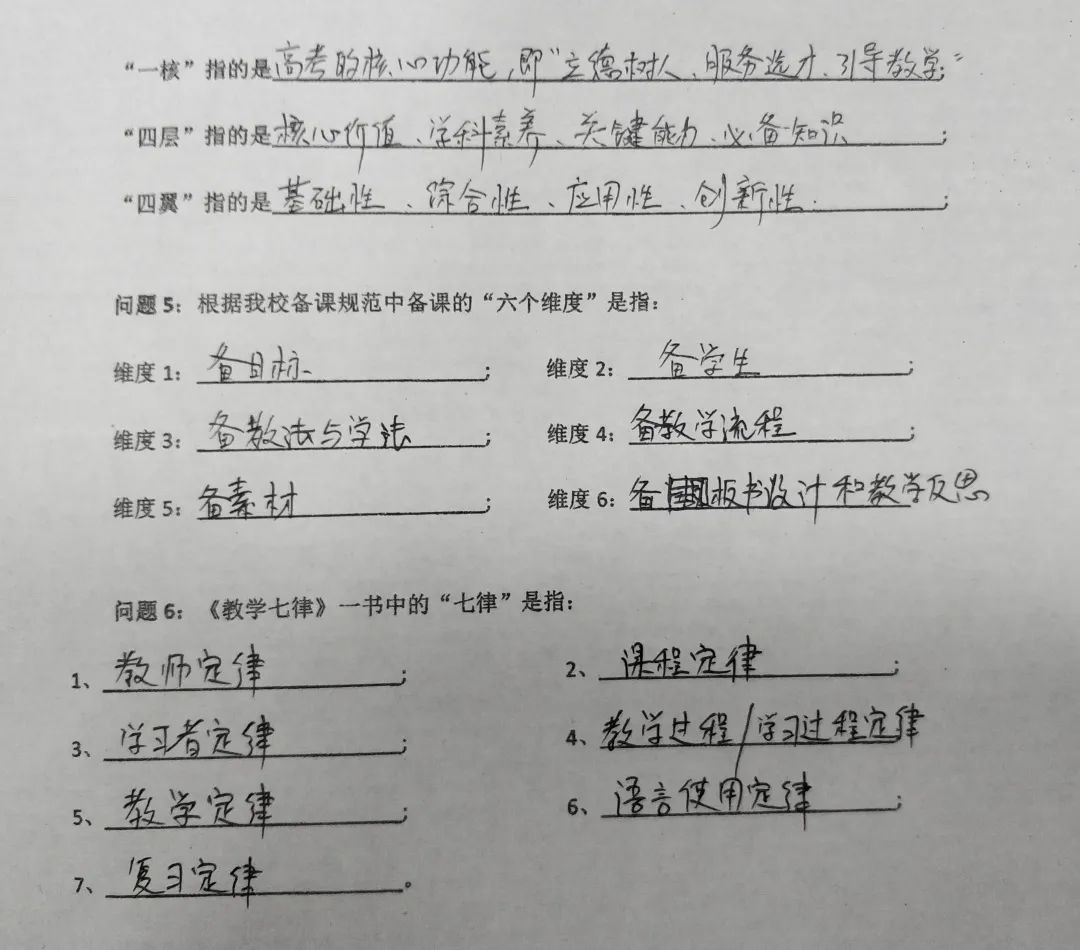 “一核”指的是高考的核心功能,即“立德树人、服务选才、引导教学”;
“四层”指的是核心价值、学科素养、关键能力、必备知识;
“四翼”指的是基础性、综合性、应用性、创新性.;
问题5：根据我校备课规范中备课的“六个维度”是指：
维度1：备目标; 维度2：备学生;
维度3：备教法与学法; 维度4：备教学流程;
维度5：备素材; 维度6：备板书设计和教学反思
问题6：《教学七律》一书中的“七律”是指：
1、教师定律; 2、课程定律;
3、学习者定律; 4、教学过程/学习过程定律
5、教学定律; 6、语言使用定律;
7、复习定律。